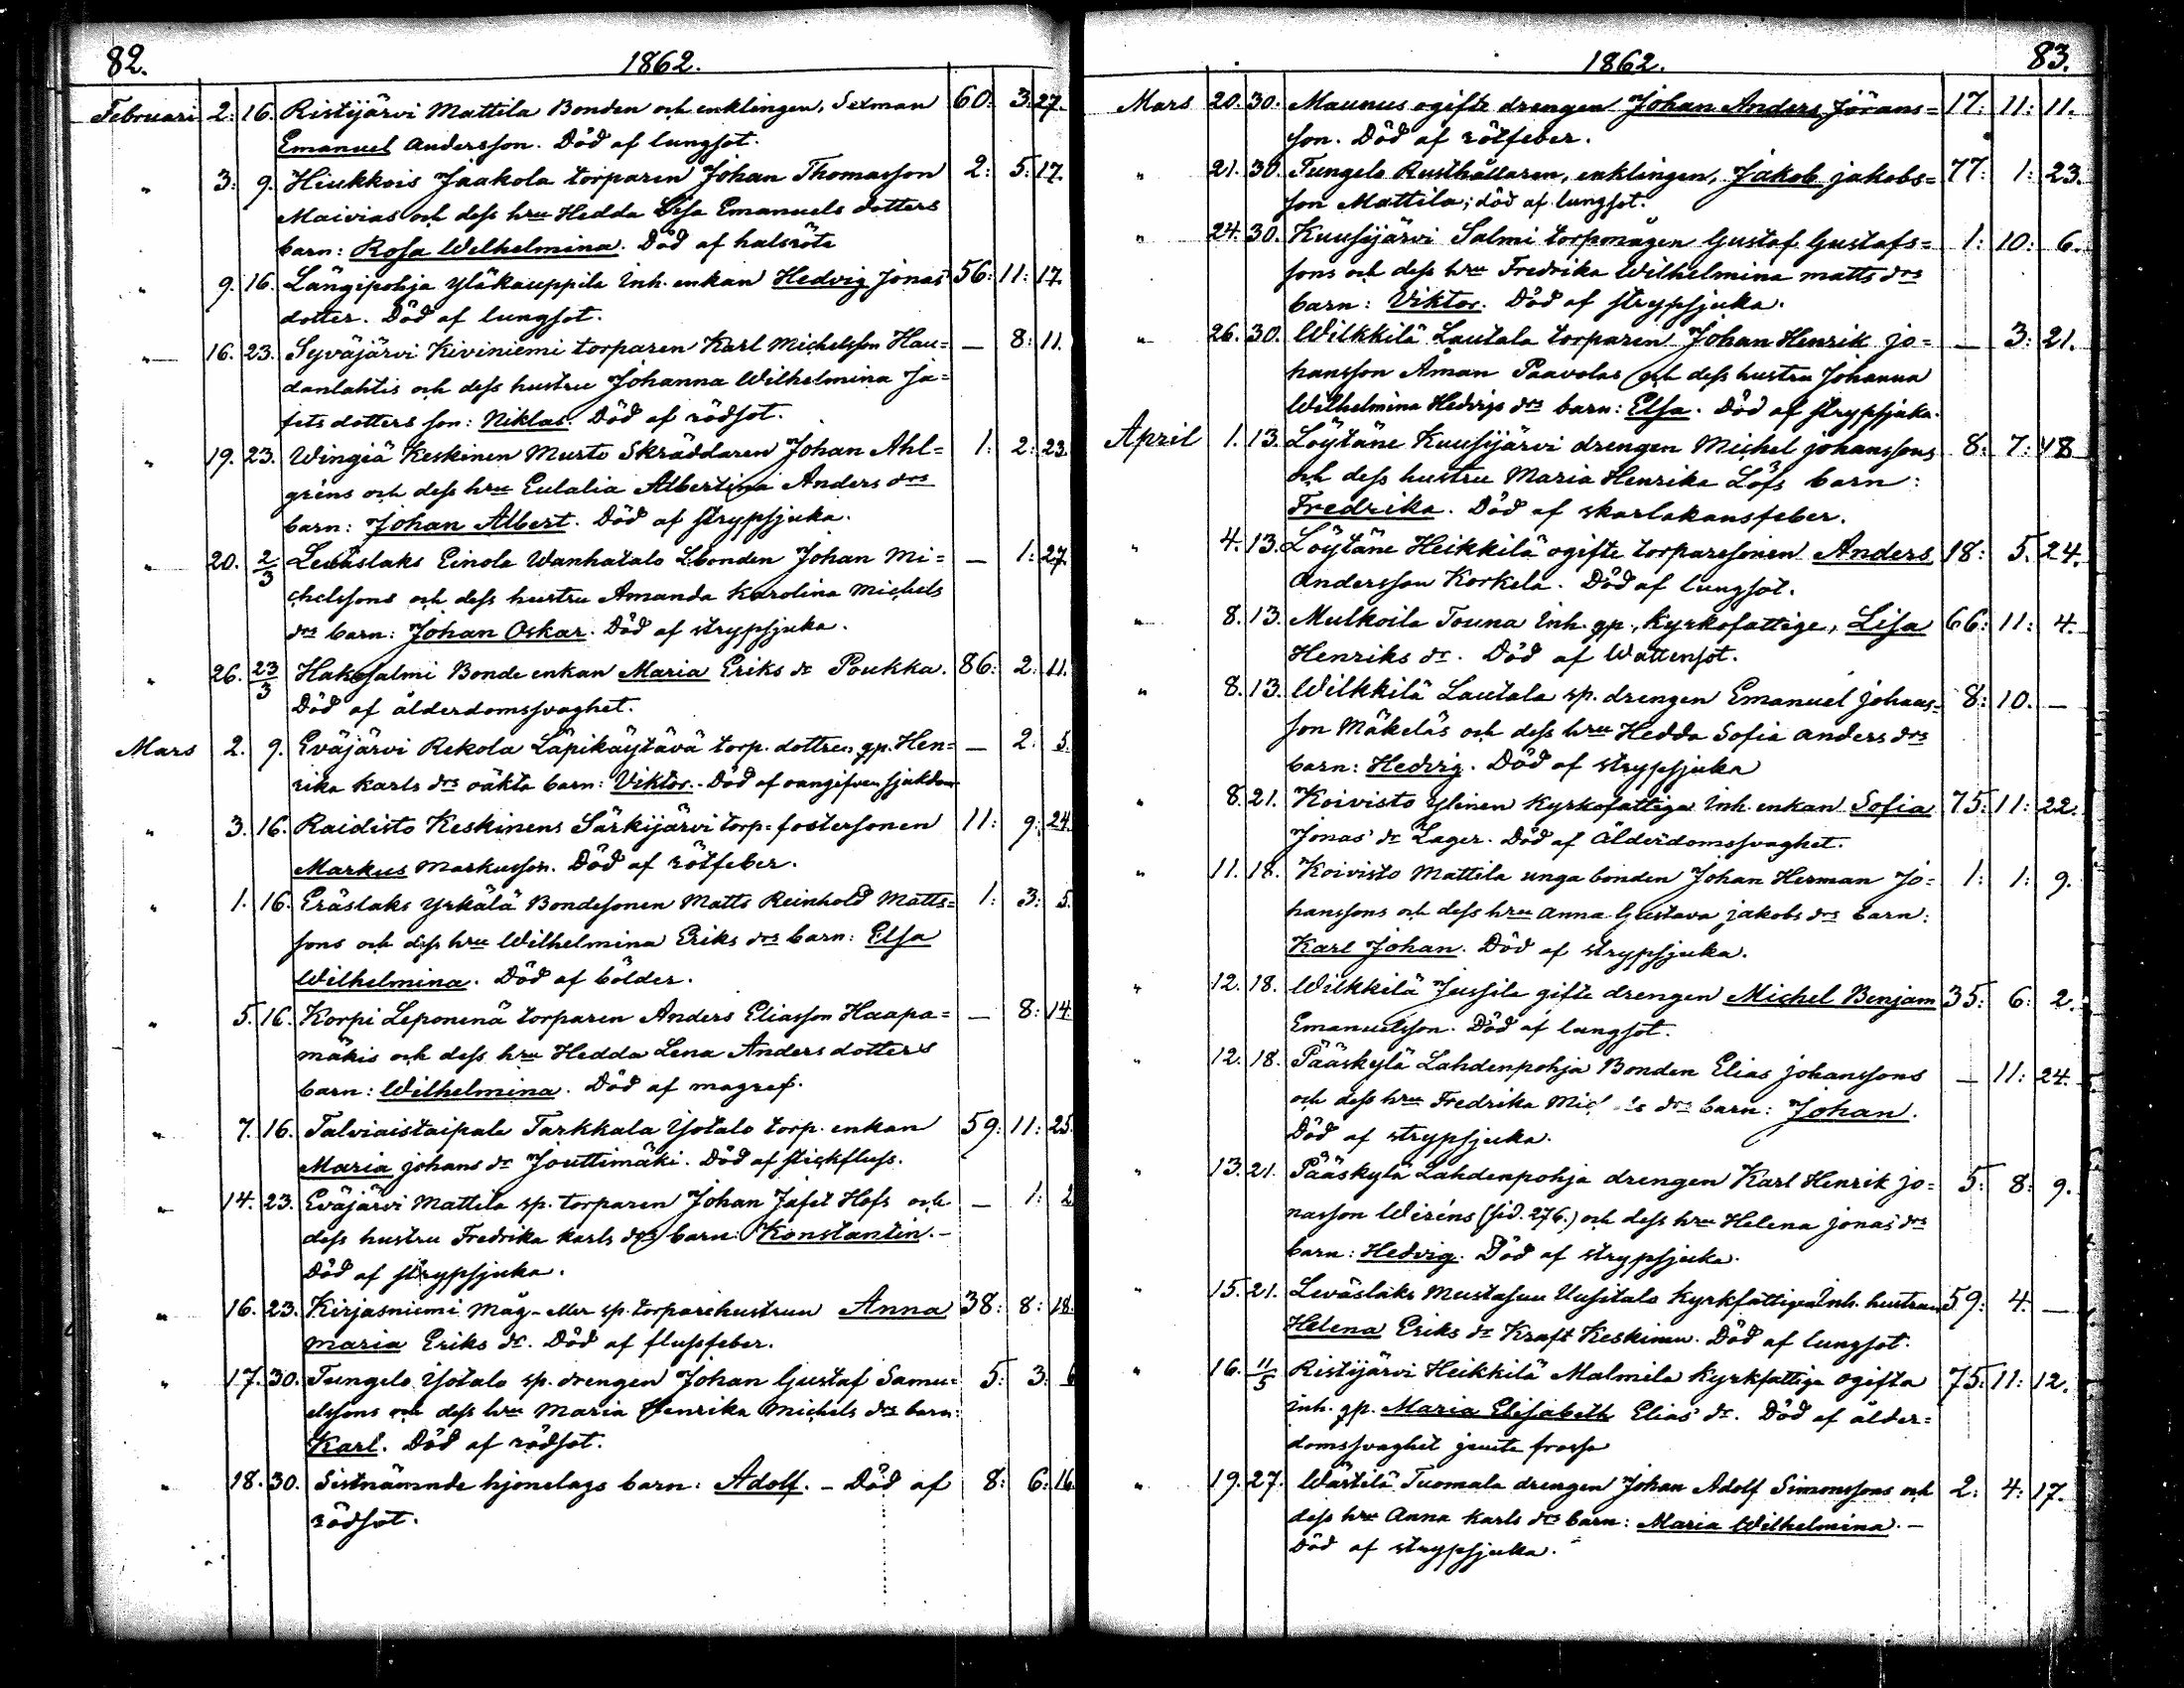 82.
1862.
Februari 2. 16. Ristijärvi Mattila Bonden och enklingen, Sexman 60: 3: 27.
Emanuel Andersson. Död af lungsot.
" 3. 9. Hiukkois Jaakola torparen Johan Thomasson 2: 5: 17.
Maivias och dess hru Hedda Lisa Emanuels dotters
barn: Rosa Welhelmina. Död af halsröte
" 9. 16. Längipohja Yläkauppila Inh. enkan Hedvig Jonas 56: 11: 17.
dotter. Död af lungsot.
" 16. 23. Syväjärvi Kiviniemi torparen Karl Michelsson Hau= — 8: 11.
danlahtis och dess hustru Johanna Wilhelmina Ja=
fets dotters son: Niklas. Död af rödsot.
" 19. 23. Wingiä Keskinen Musto Skräddaren Johan Ahl= 1: 2: 23.
gréns och dess hru Eulalia Albertina Anders drs
barn: Johan Albert. Död af strypsjuka.
" 20. 2/3 Leväslaks Einola Wanhatalo Lbonden Johan Mi= — 1: 27.
chelssons och dess hustru Amanda Karolina Michels
drs barn: Johan Oskar. Död af strypsjuka.
" 26. 23/3 Hakosalmi Bonde enkan Maria Eriks dr Poukka. 86: 2: 11.
Död af ålderdomssvaghet.
Mars 2. 9. Eväjärvi Rekola Läpikäytävä torp. dottren gp. Hen= — 2. 5.
rika Karls drs oäkta barn: Viktor. - Död af oangifven sjukdom
" 3. 16. Raidisto Keskinens Särkijärvi torp= fostersonen 11: 9: 24.
Markus Markusson. Död af rötfeber.
" 1. 16. Eräslaks Yrkälä Bondesonen Matts Reinhold Matts= 1: 3: 5.
sons och dess hru Wilhelmina Eriks drs barn: Elsa
Wilhelmina. Död af bölder.
" 5. 16. Korpi Leponenä torparen Anders Eliasson Haapa= — 8: 14.
mäkis och dess hru Hedda Lena Anders dotters
barn: Wilhelmina. Död af magref.
" 7. 16. Talviaistaipale Tarkkala Yotalo torp. enkan 59: 11: 25.
Maria Johans dr Jouttimäki. Död af stickfluss.
" 14. 23. Eväjärvi Mattila sp. torparen Johan Jafet Hofs och — 1: 2
dess hustru Fredrika Karls drs barn: Konstantin. -
Död af strypsjuka.
" 16. 23. Kirjasniemi Mäg- eller sp. torparehustrun Anna 38: 8: 18.
Maria Eriks dr. Död af flussfeber.
" 17. 30. Tungelo Yotalo sp. drengen Johan Gustaf Samu= 5: 3: 6
elssons och dess hru Maria Henrika Michels drs barn:
Karl. Död af rödsot.
" 18. 30. Sistnämnde hjonelags barn: Adolf. - Död af 8: 6: 16.
rödsot.
1862.
83.
Mars 20. 30. Maunus ogifte drengen Johan Anders Jörans= 17: 11: 11.
son. Död af rötfeber.
" 21. 30. Tungelo Rusthållaren, enklingen, Jakob Jakobs= 77: 1: 23.
son Mattila; död af lungsot.
" 24. 30. Kuusijärvi Salmi torpmågen Gustaf Gustafs= 1: 10: 6.
sons och dess hru Fredrika Wilhelmina Matts drs
barn: Viktor. Död af strypsjuka.
" 26. 30. Wilkkilä Lautala torparen Johan Henrik Jo= — 3: 21.
hansson Åman Paavolas och dess hustru Johanna
Wilhelmina Hedvigs drs barn: Elsa. Död af strypsjuka.
April 1. 13. Löytäne Kuusijärvi drengen Michel Johanssons 8: 7: 18
och dess hustru Maria Henrika Löfs barn:
Fredrika. Död af skarlakansfeber.
" 4. 13. Löytäne Heikkilä ogifte torparesonen Anders 18: 5. 24.
Andersson Korkela. Död af lungsot.
" 8. 13. Mulkoila Touna Inh. gp., Kyrkofattige, Lisa 66: 11: 4.
Henriks dr. Död af Wattensot.
" 8. 13. Wilkkilä Lautala sp. drengen Emanuel Johans= 8: 10. —
son Mäkeläs och dess hru Hedda Sofia Anders drs
barn: Hedvig. Död af strypsjuka
" 8. 21. Koivisto Ylinen Kyrkofattiga Inh. enkan Sofia 75: 11: 22.
Jonas' dr Lager. Död af Ålderdomssvaghet.
" 11. 18. Koivisto Mattila unga bonden Johan Herman Jo= 1: 1: 9.
hanssons och dess hru Anna Gustava Jakobs drs barn:
Karl Johan. Död af strypsjuka.
" 12. 18. Wilkkilä Jussila gifte drengen Michel Benjam 35: 6: 2.
Emanuelsson. Död af lungsot.
" 12. 18. Pääskylä Lahdenpohja Bonden Elias Johanssons — 11: 24.
och dess hru Fredrika drs barn: Johan.
Död af strypsjuka.
" 13. 21. Pääskylä Lahdenpohja drengen Karl Henrik Jo= 5: 8: 9.
nasson Weréns (sid. 276.) och dess hru Helena Jonas' drs
barn: Hedvig. Död af strypsjuka.
" 15. 21. Leväslaks Mustasuu Uusitalo Kyrkfattiga Inh. hustrun 59: 4. —
Helena Eriks dr Kraft Keskinen. Död af lungsot.
" 16. 11/5 Ristijärvi Heikkilä Malmila kyrkfattiga ogifta 75: 11: 12.
inh. gp. Maria Elisabeth Elias' dr. Död af ålder=
domssvaghet jemte frossa
" 19. 27. Wärtilä Tuomala drengen Johan Adolf Simonssons och 2: 4: 17.
dess hru Anna Karls drs barn: Maria Wilhelmina. -
Död af strypsjuka.